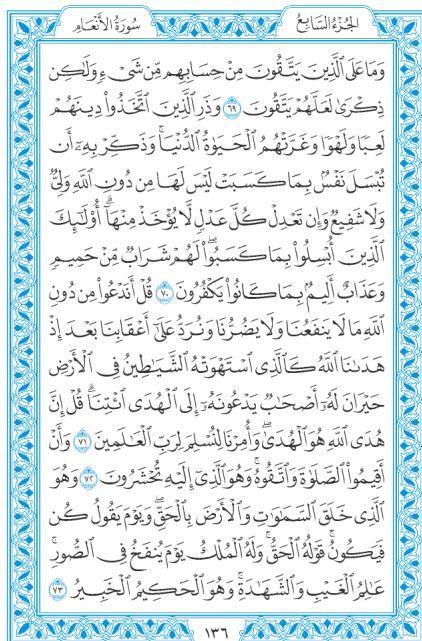 الجزء السابع
سورة الأنعام
وَمَا عَلَى ٱلَّذِينَ يَتَّقُونَ مِنۡ حِسَابِهِم مِّن شَيۡءٖ وَلَٰكِن
ذِكۡرَىٰ لَعَلَّهُمۡ يَتَّقُونَ ٦٩ وَذَرِ ٱلَّذِينَ ٱتَّخَذُواْ دِينَهُمۡ
لَعِبٗا وَلَهۡوٗا وَغَرَّتۡهُمُ ٱلۡحَيَوٰةُ ٱلدُّنۡيَاۚ وَذَكِّرۡ بِهِۦٓ أَن
تُبۡسَلَ نَفۡسُۢ بِمَا كَسَبَتۡ لَيۡسَ لَهَا مِن دُونِ ٱللَّهِ وَلِيّٞ
وَلَا شَفِيعٞ وَإِن تَعۡدِلۡ كُلَّ عَدۡلٖ لَّا يُؤۡخَذۡ مِنۡهَآۗ أُوْلَٰٓئِكَ
ٱلَّذِينَ أُبۡسِلُواْ بِمَا كَسَبُواْۖ لَهُمۡ شَرَابٞ مِّنۡ حَمِيمٖ
وَعَذَابٌ أَلِيمُۢ بِمَا كَانُواْ يَكۡفُرُونَ ٧٠ قُلۡ أَنَدۡعُواْ مِن دُونِ
ٱللَّهِ مَا لَا يَنفَعُنَا وَلَا يَضُرُّنَا وَنُرَدُّ عَلَىٰٓ أَعۡقَابِنَا بَعۡدَ إِذۡ
هَدَىٰنَا ٱللَّهُ كَٱلَّذِي ٱسۡتَهۡوَتۡهُ ٱلشَّيَٰطِينُ فِي ٱلۡأَرۡضِ
حَيۡرَانَ لَهُۥٓ أَصۡحَٰبٞ يَدۡعُونَهُۥٓ إِلَى ٱلۡهُدَى ٱئۡتِنَاۗ قُلۡ إِنَّ
هُدَى ٱللَّهِ هُوَ ٱلۡهُدَىٰۖ وَأُمِرۡنَا لِنُسۡلِمَ لِرَبِّ ٱلۡعَٰلَمِينَ ٧١ وَأَنۡ
أَقِيمُواْ ٱلصَّلَوٰةَ وَٱتَّقُوهُۚ وَهُوَ ٱلَّذِيٓ إِلَيۡهِ تُحۡشَرُونَ ٧٢ وَهُوَ
ٱلَّذِي خَلَقَ ٱلسَّمَٰوَٰتِ وَٱلۡأَرۡضَ بِٱلۡحَقِّۖ وَيَوۡمَ يَقُولُ كُن
فَيَكُونُۚ قَوۡلُهُ ٱلۡحَقُّۚ وَلَهُ ٱلۡمُلۡكُ يَوۡمَ يُنفَخُ فِي ٱلصُّورِۚ
عَٰلِمُ ٱلۡغَيۡبِ وَٱلشَّهَٰدَةِۚ وَهُوَ ٱلۡحَكِيمُ ٱلۡخَبِيرُ ٧٣
١٣٦